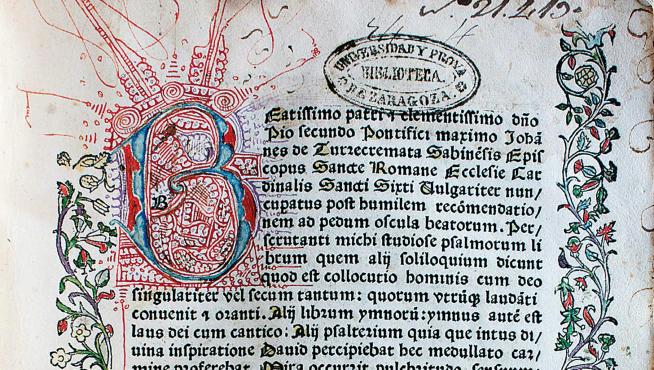 Nº. 21.413.
UNIVERSIDAD Y PROVA
BIBLIOTECA.
DE ZARAGOZA
B
Eatissimo patri ⁊ clementissimo dño
Pio secundo Pontifici maximo Johã
nes de Turrecremata Sabinẽsis Epis
copus Sancte Romane Ecclesie Car
dinalis Sancti Sixti Vulgariter nun/
cupatus post humilem recõmendatio/
nem ad pedum oscula beatorum. Per/
scrutanti michi studiose psalmorum li
brum quem alij soliloquium dicunt
quod est collocutio hominis cum deo
singulariter vel secum tantum: quorum vtrũq; laudãti
conuenit ⁊ oranti. Alij librum ymnorũ: ymnus autẽ est
laus dei cum cantico: Alij psalterium quia que intus di/
uina inspiratione Dauid percipiebat hec medullato car/
mine proferebat. Mira occurrit pulchritudo sensuum: